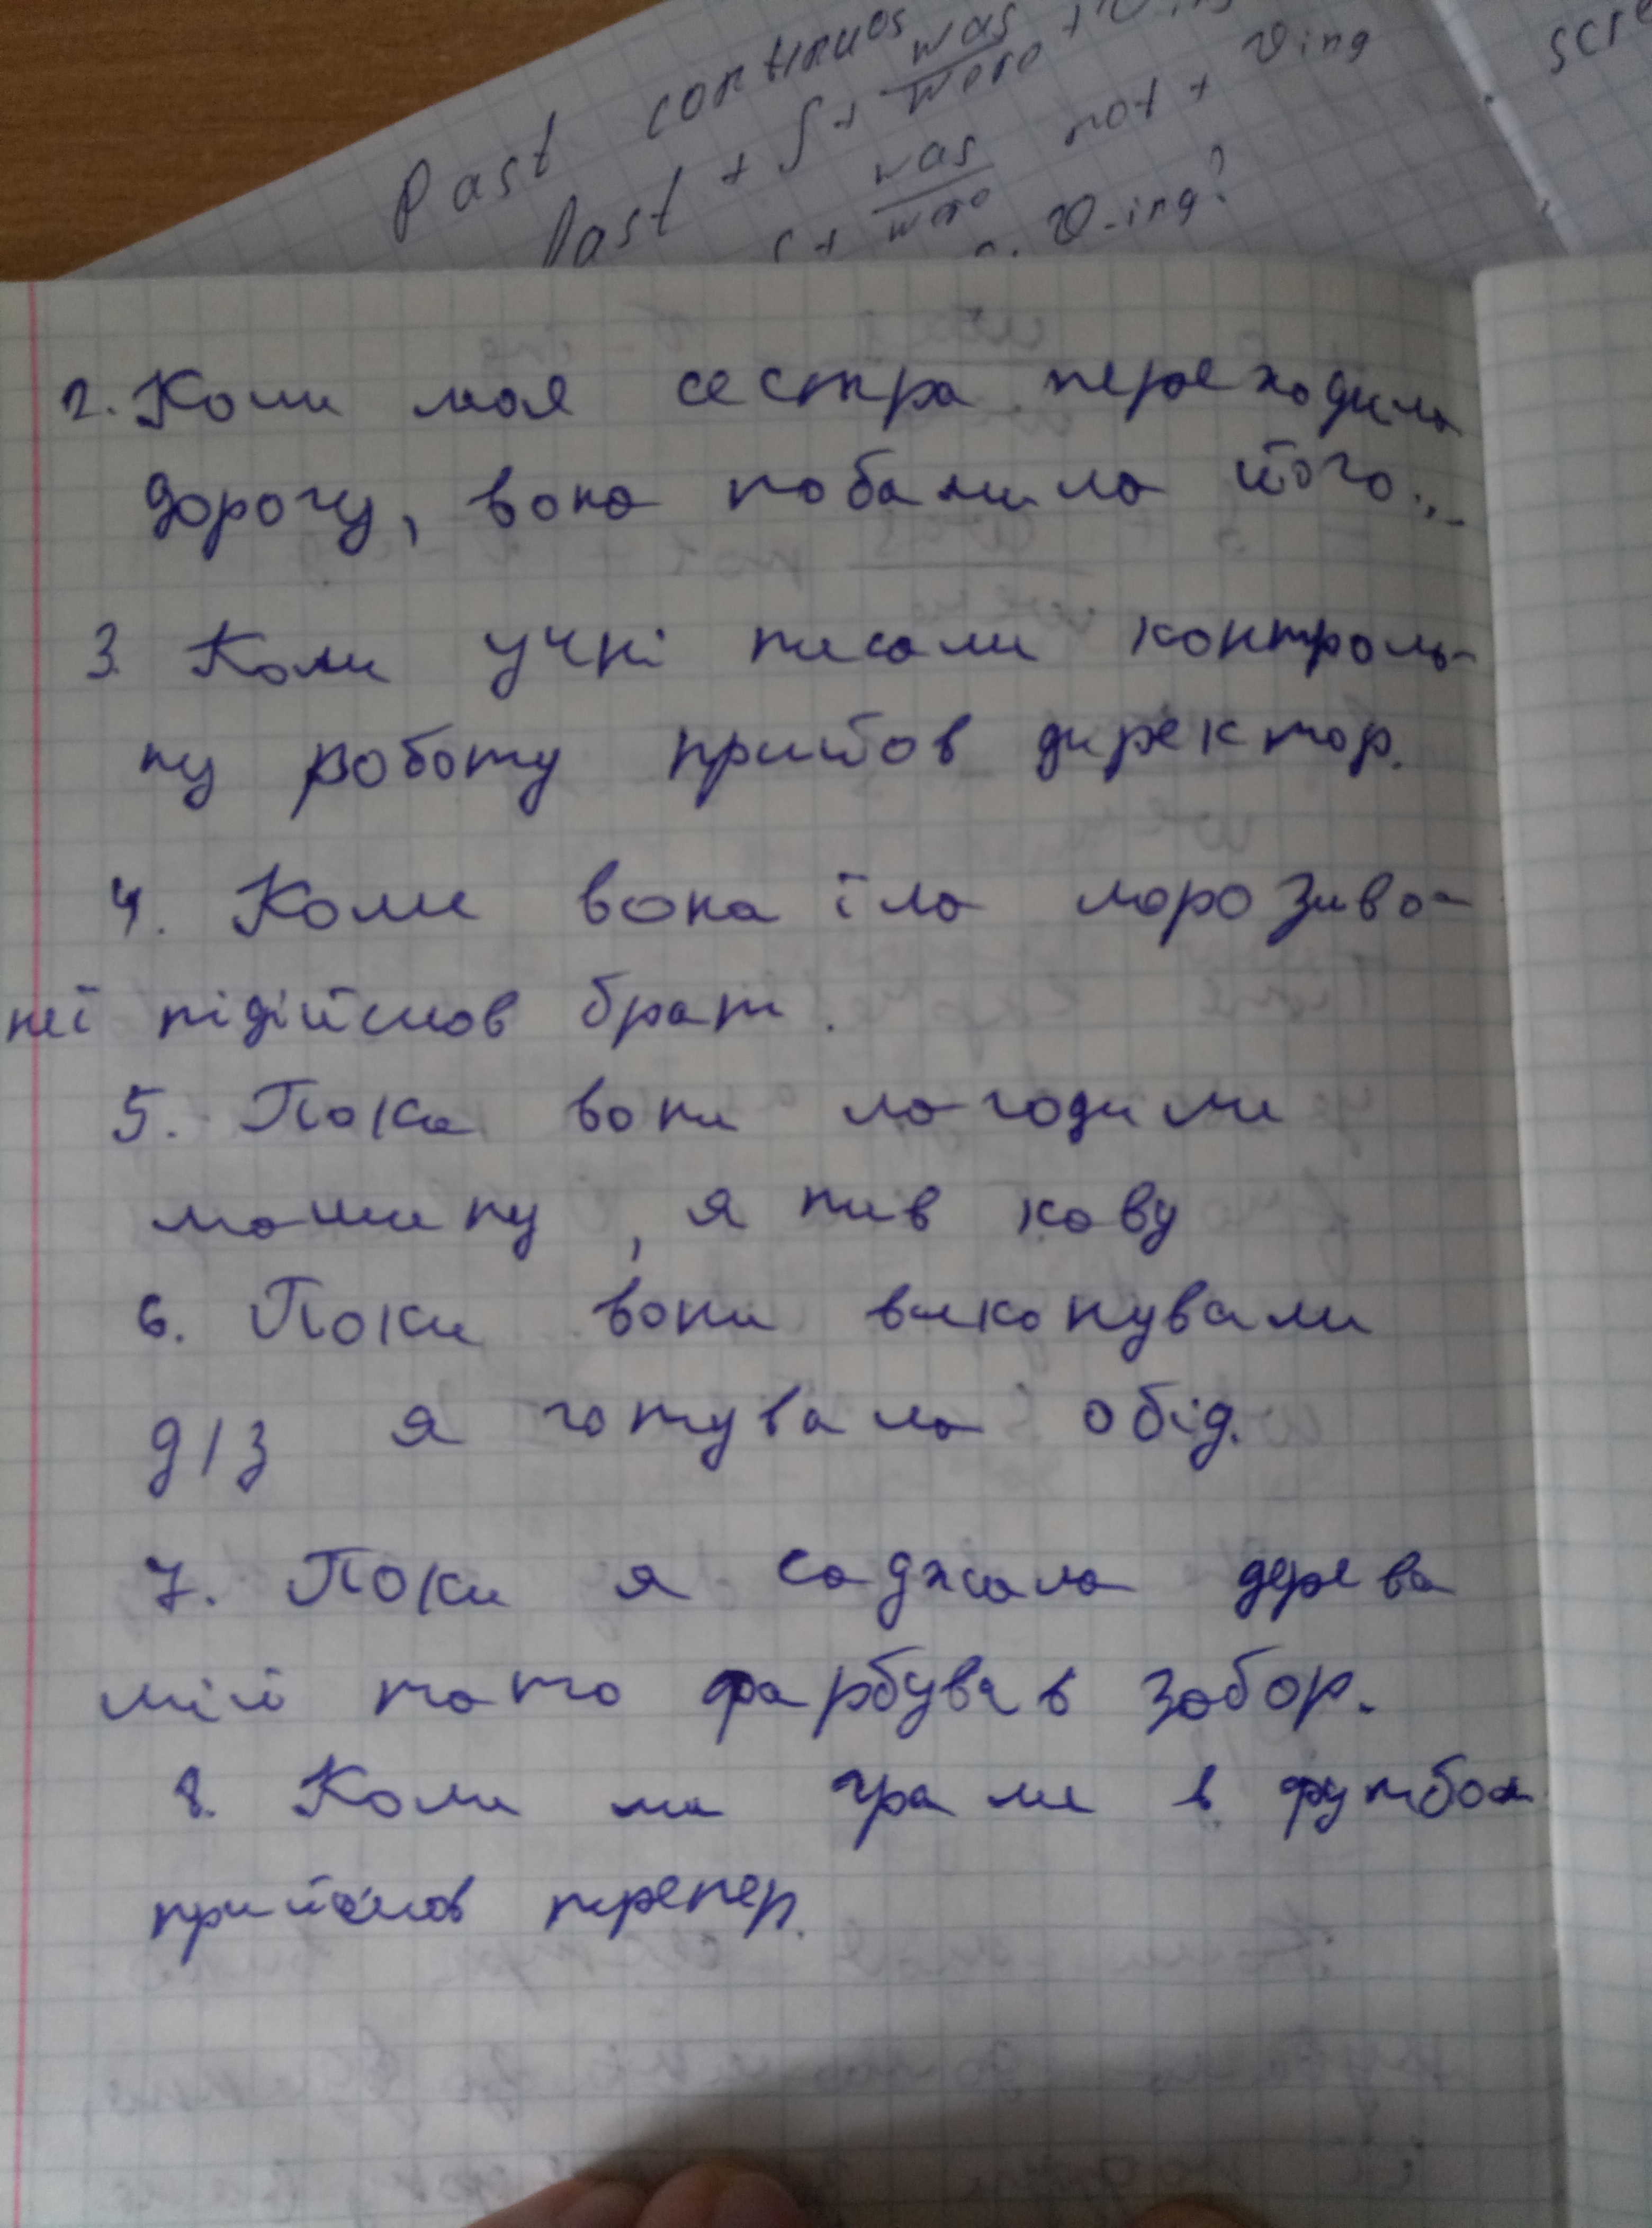 Past continuos
Past + S + was/were + V ing
S + was/were not + Ving
V-ing?
2. Коли моя сестра переходила
дорогу, вона побачила його...
3. Коли учні писали контроль-
ну роботу прийшов директор.
4. Коли вона їла морозиво
неї підійшов брат.
5. Поки вони лагодили
машину, я пив каву
6. Поки вони виконували
д/з я готувала обід.
7. Поки я саджала дерева
мій тато фарбував забор.
8. Коли ми грали в футбол
прийшов тренер.